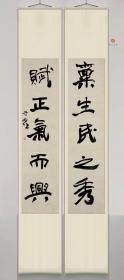 稟生民之秀
賦正氣而興